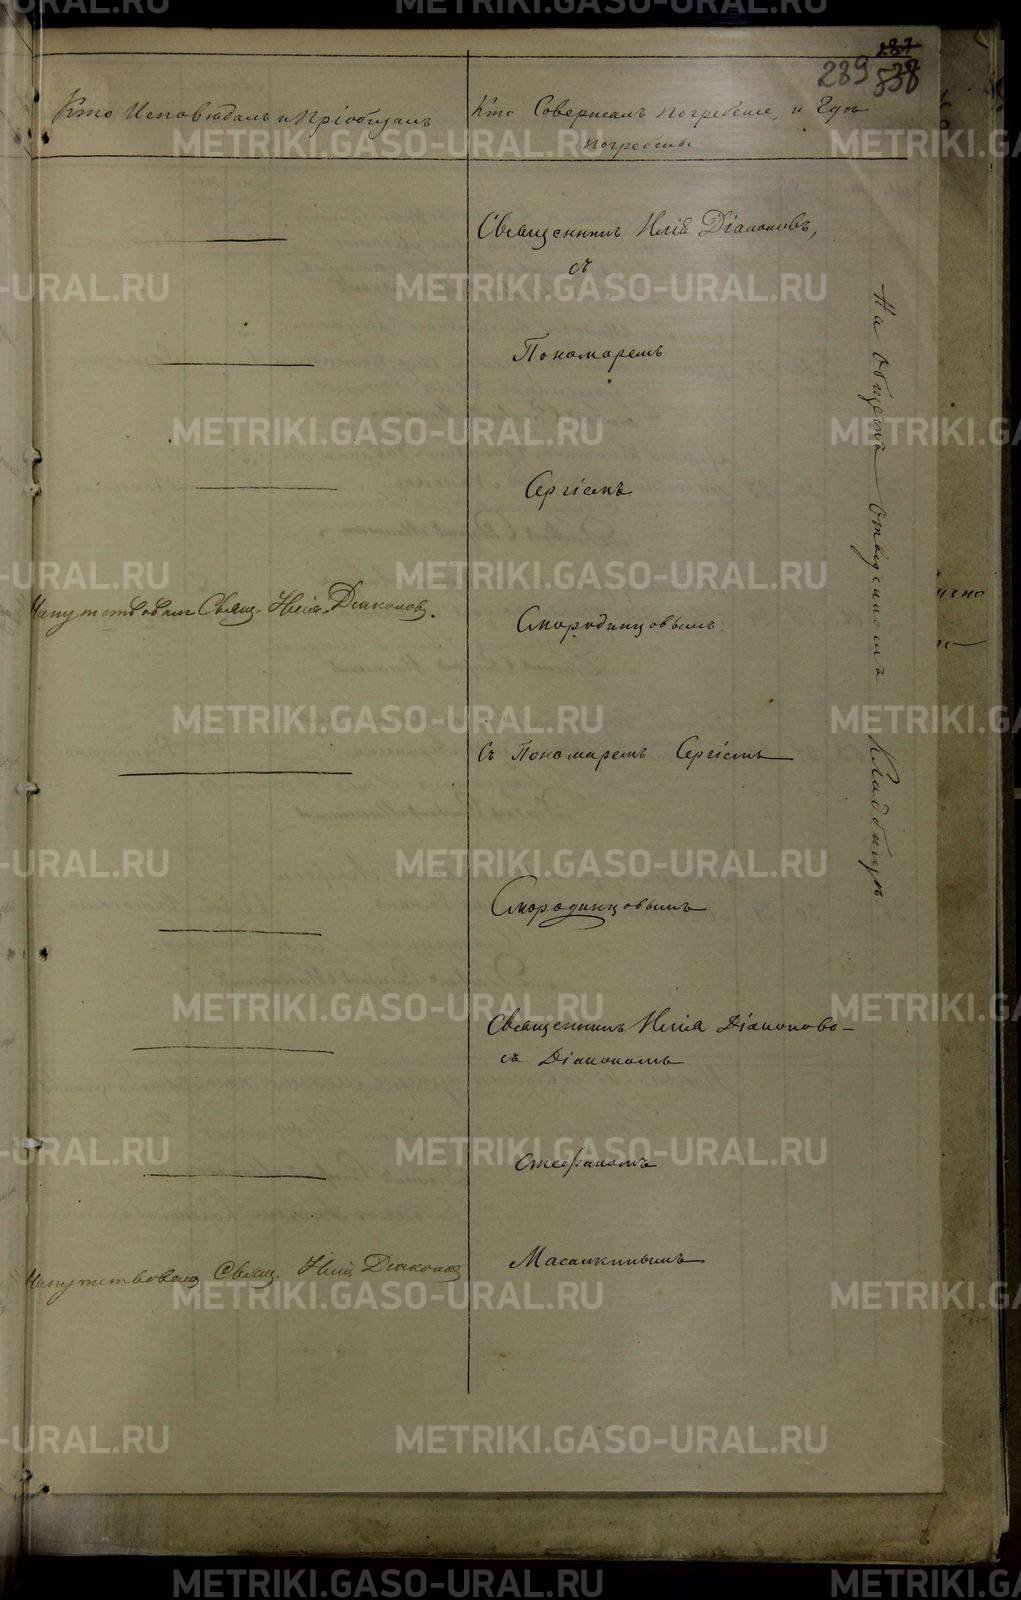 289
Кто Исповѣдалъ и Пріобщалъ
Кто Совершалъ погребеніе, и Гдѣ
погребены
Священникъ Илія Діаконовъ,
съ
Пономаремъ
Сергіемъ
Напутствовалъ Свящ. Илія Діаконов.
Смородинцовымъ
Съ Пономаремъ Сергіемъ
Смородинцовымъ
Священникъ Илія Діаконовъ
съ Діакономъ
Стефаномъ
Напутствовалъ Свящ. Илія Діаконов
Масалкинымъ
На общемъ отведенномъ Кладбищѣ
METRIKI.GASO-URAL.RU